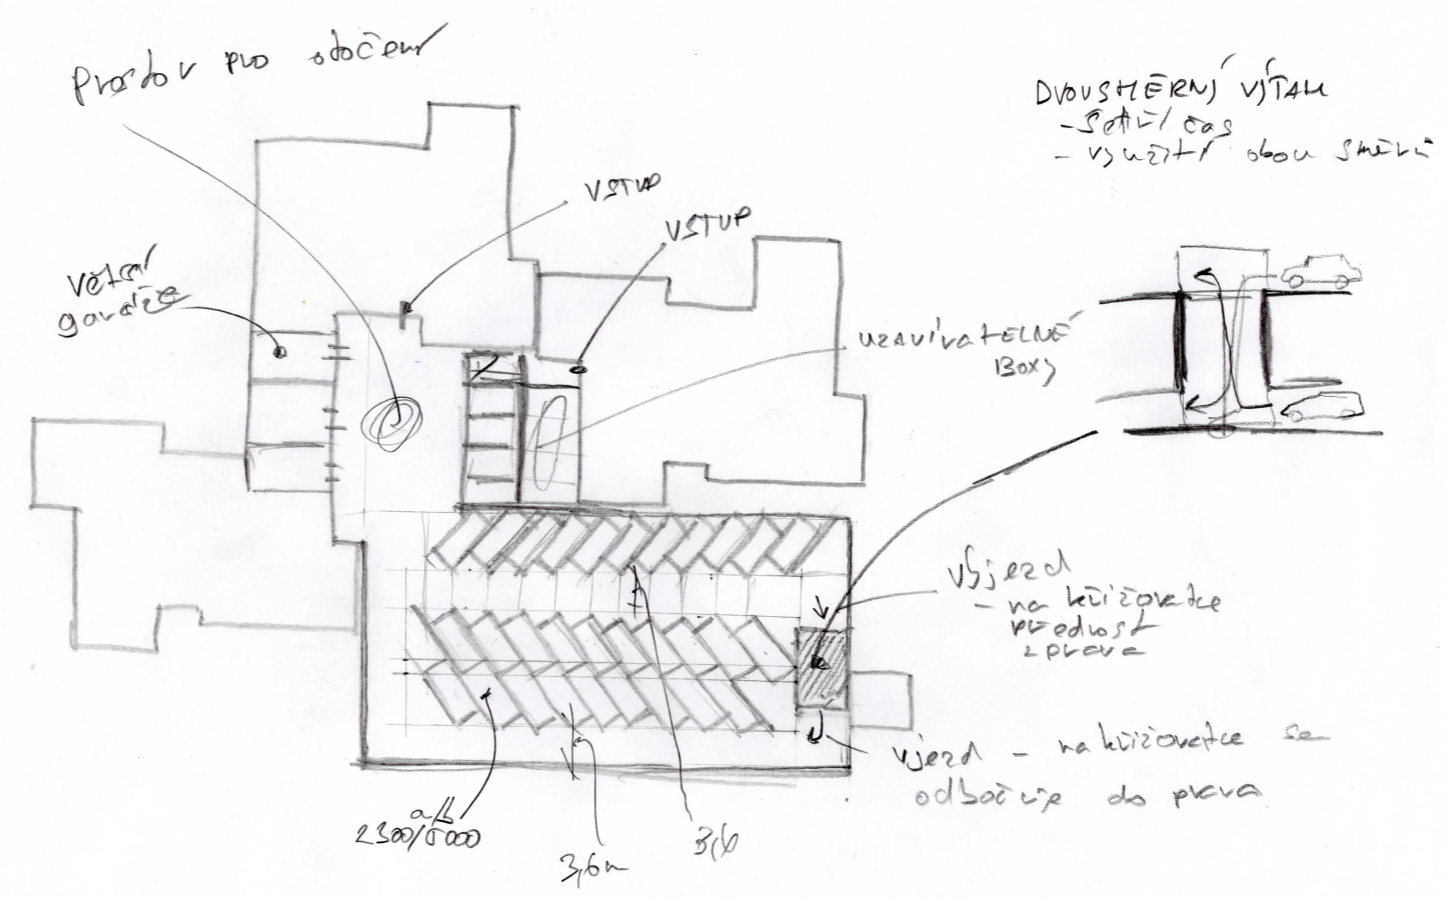 Prostor pro otočení
DVOUSMĚRNÝ VÝTAH
- šetří čas
- využití obou směrů
VSTUP
VSTUP
Větší
garáže
UZAVÍRATELNÉ
BOXY
Výjezd
- na křižovatce
přednost
zprava
vjezd - na křižovatce se
odbočuje do prava
a/b
2300/5000
3,6m
3,6